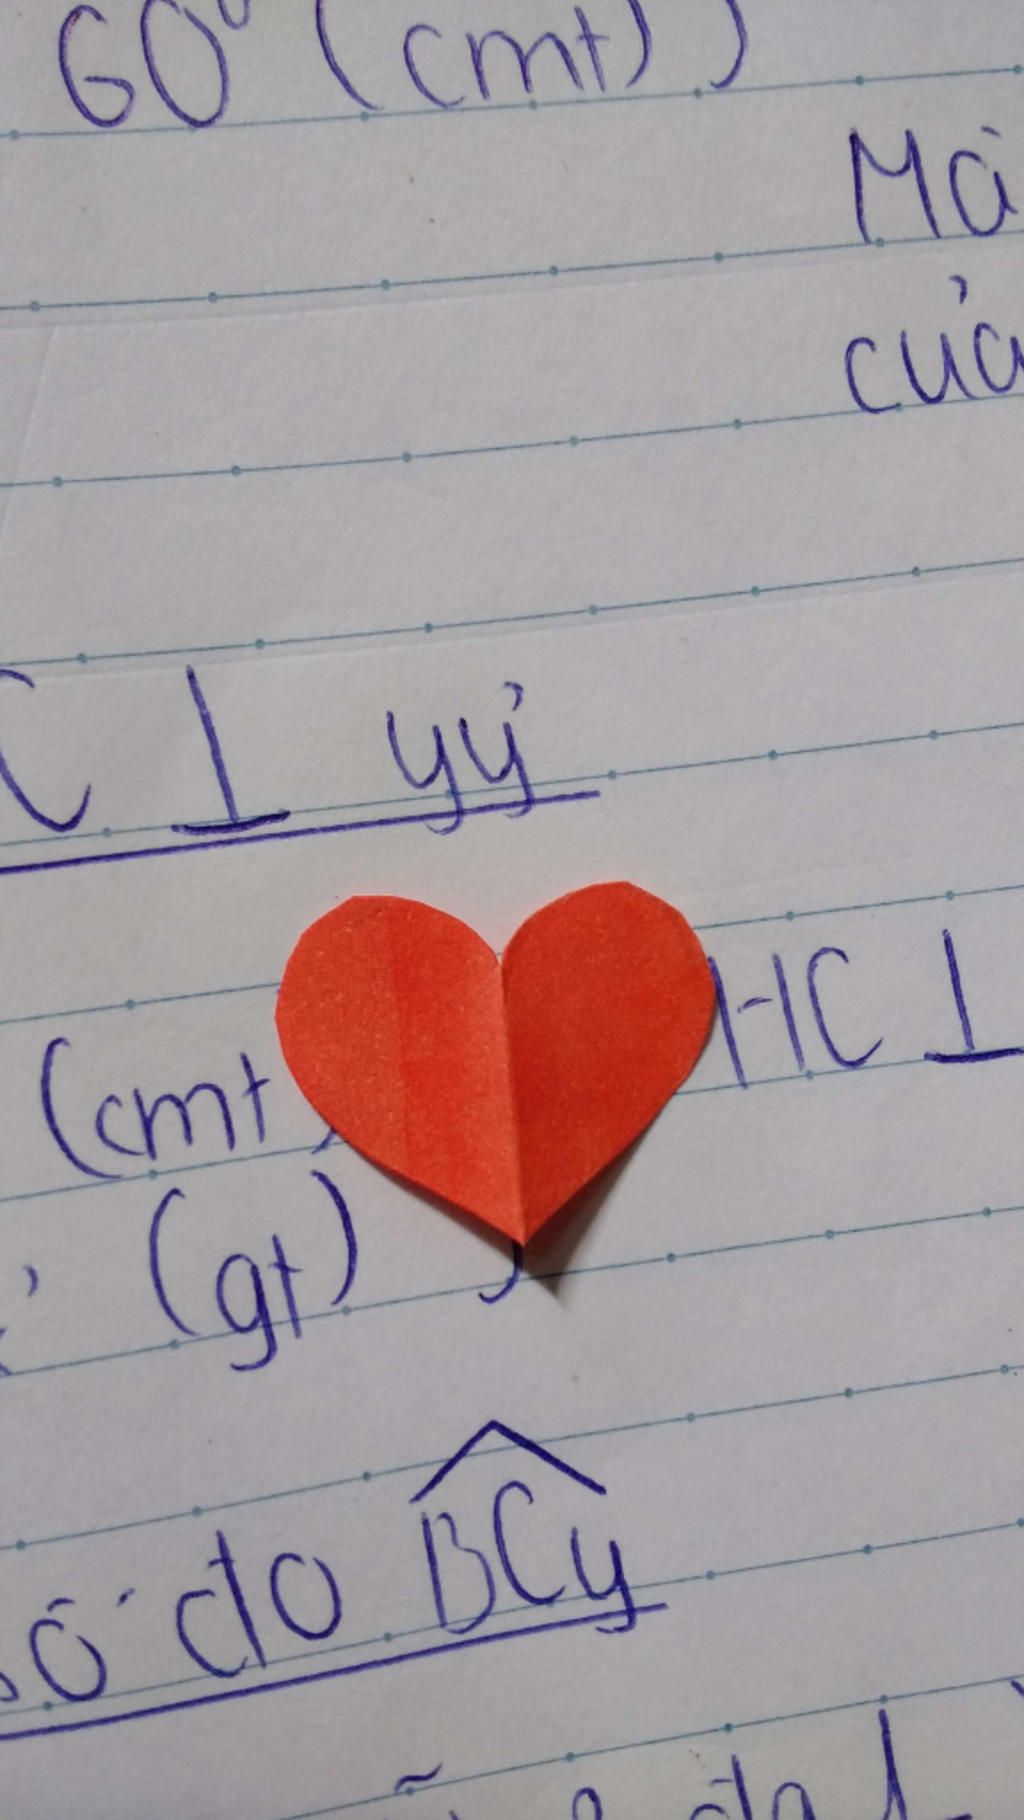 60° (cmt) )
Mà
của
C ⊥ yy'
(cmt) HC ⊥
(gt) )
số đo BCy